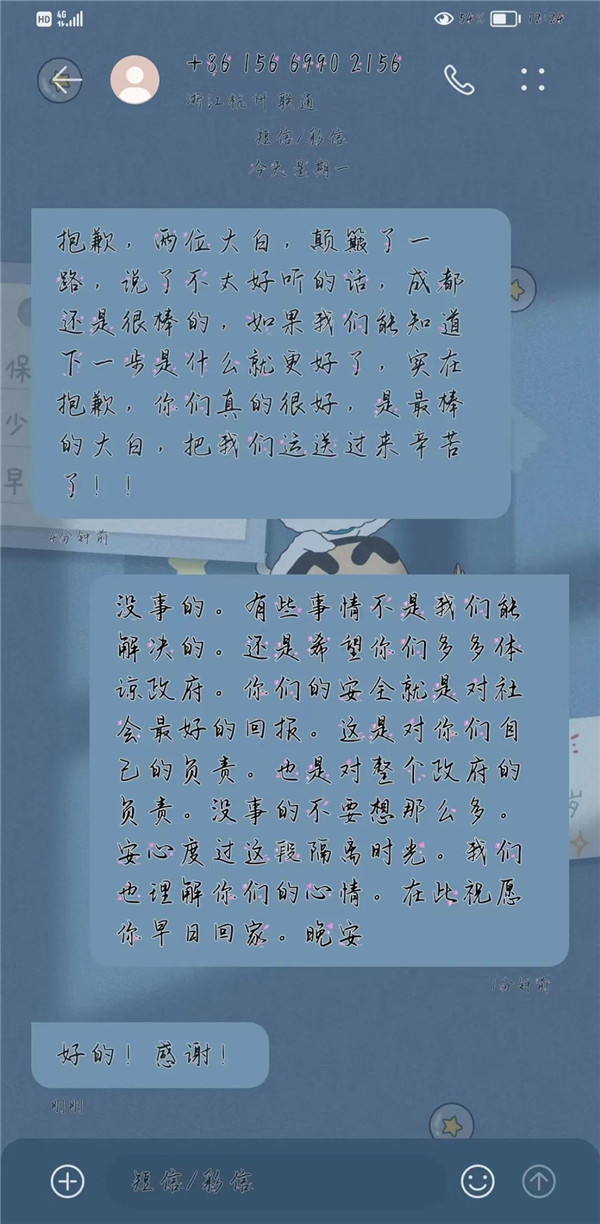 HD 4G 54% 12:24
+86 156 6990 2156
浙江杭州 联通
短信/彩信
今天星期一
抱歉，两位大白，颠簸了一
路，说了不太好听的话，成都
还是很棒的，如果我们能知道
下一步是什么就更好了，实在
抱歉，你们真的很好，是最棒
的大白，把我们运送过来辛苦
了！！
保
少
早
4分钟前
没事的。有些事情不是我们能
解决的。还是希望你们多多体
谅政府。你们的安全就是对社
会最好的回报。这是对你们自
己的负责。也是对整个政府的
负责。没事的不要想那么多。
安心度过这段隔离时光。我们
也理解你们的心情。在此祝愿
你早日回家。晚安
1分钟前
好的！感谢！
刚刚
短信/彩信